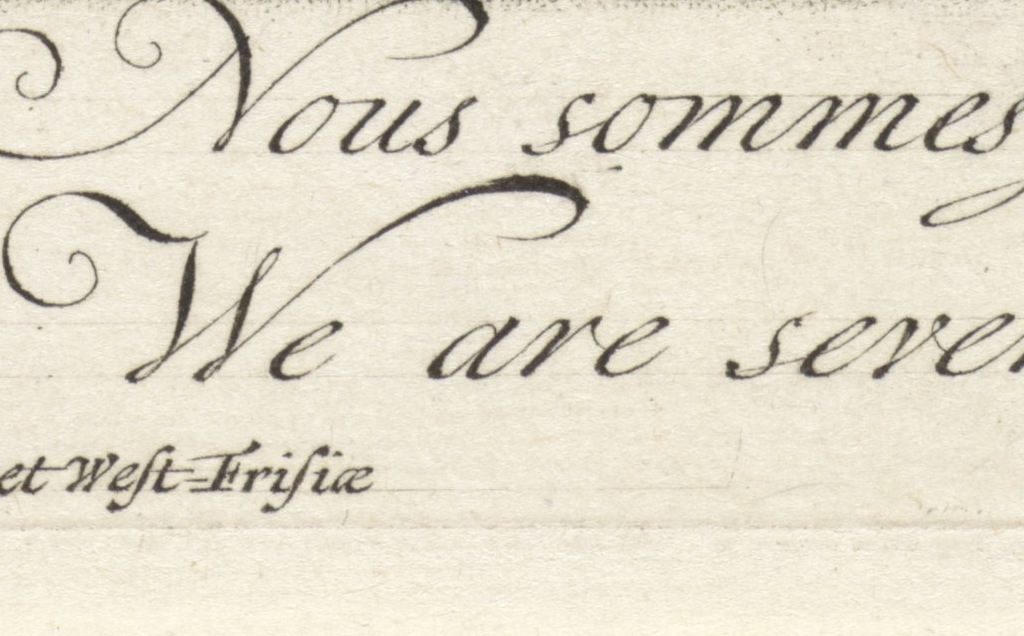 Nous sommes
We are seven
et West-Frisiæ